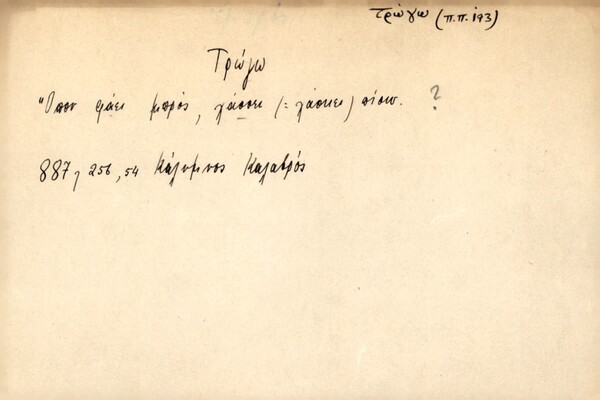 τρώγω (π.π. 193)
Τρώγω
Ὅπου φάει μπρός, χάσσει (= χάσκει) πίσω. ?
887, 256, 54 Κάλυμνος Καλαβρός